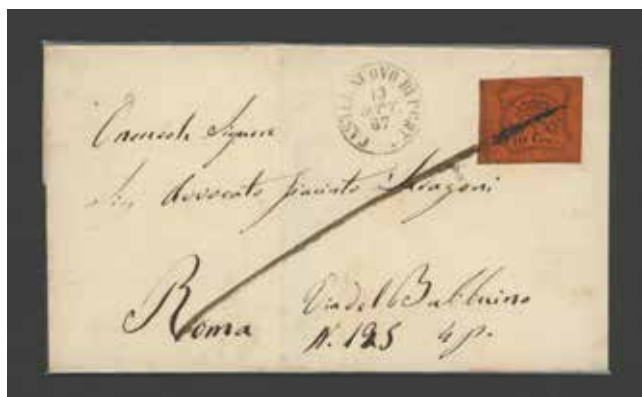 CASTELNUOVO DI PORTO
13
OTT
67
10 Cen.
Signore
Avvocato
Roma
Via del Babbuino
N. 125 4 p.